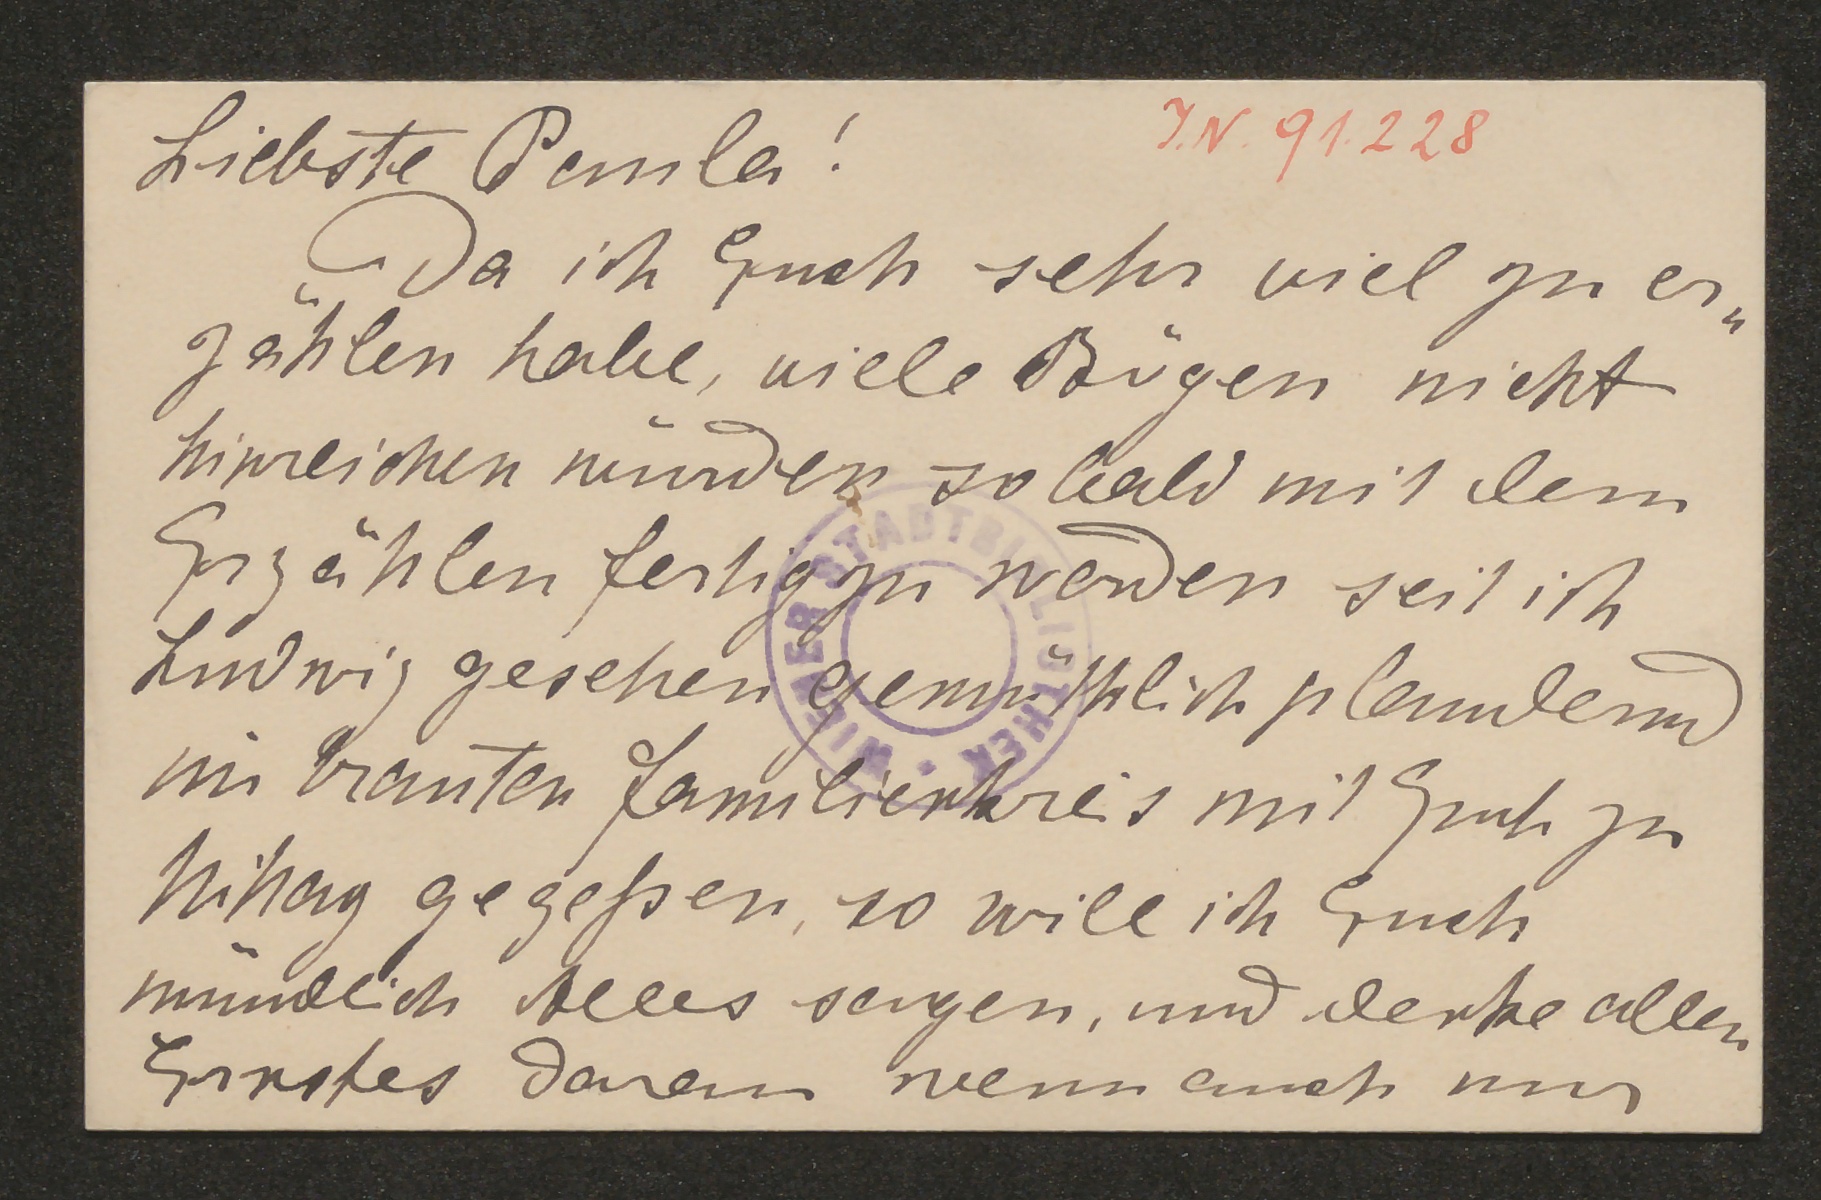 Liebste Paula!
J.N. 91.228
Da ich Euch sehr viel zu er„
zählen habe, viele Bögen nicht
hinreichen würden so bald mit dem
Erzählen fertig zu werden seit ich
Ludwig gesehen gemüthlich plaudernd
im trauten Familienkreis mit Euch zu
Mittag gegeßen, so will ich Euch
mündlich Alles sagen, und denke allen
Ernstes daran wenn auch nur
WIENER STADTBIBLIOTHEK